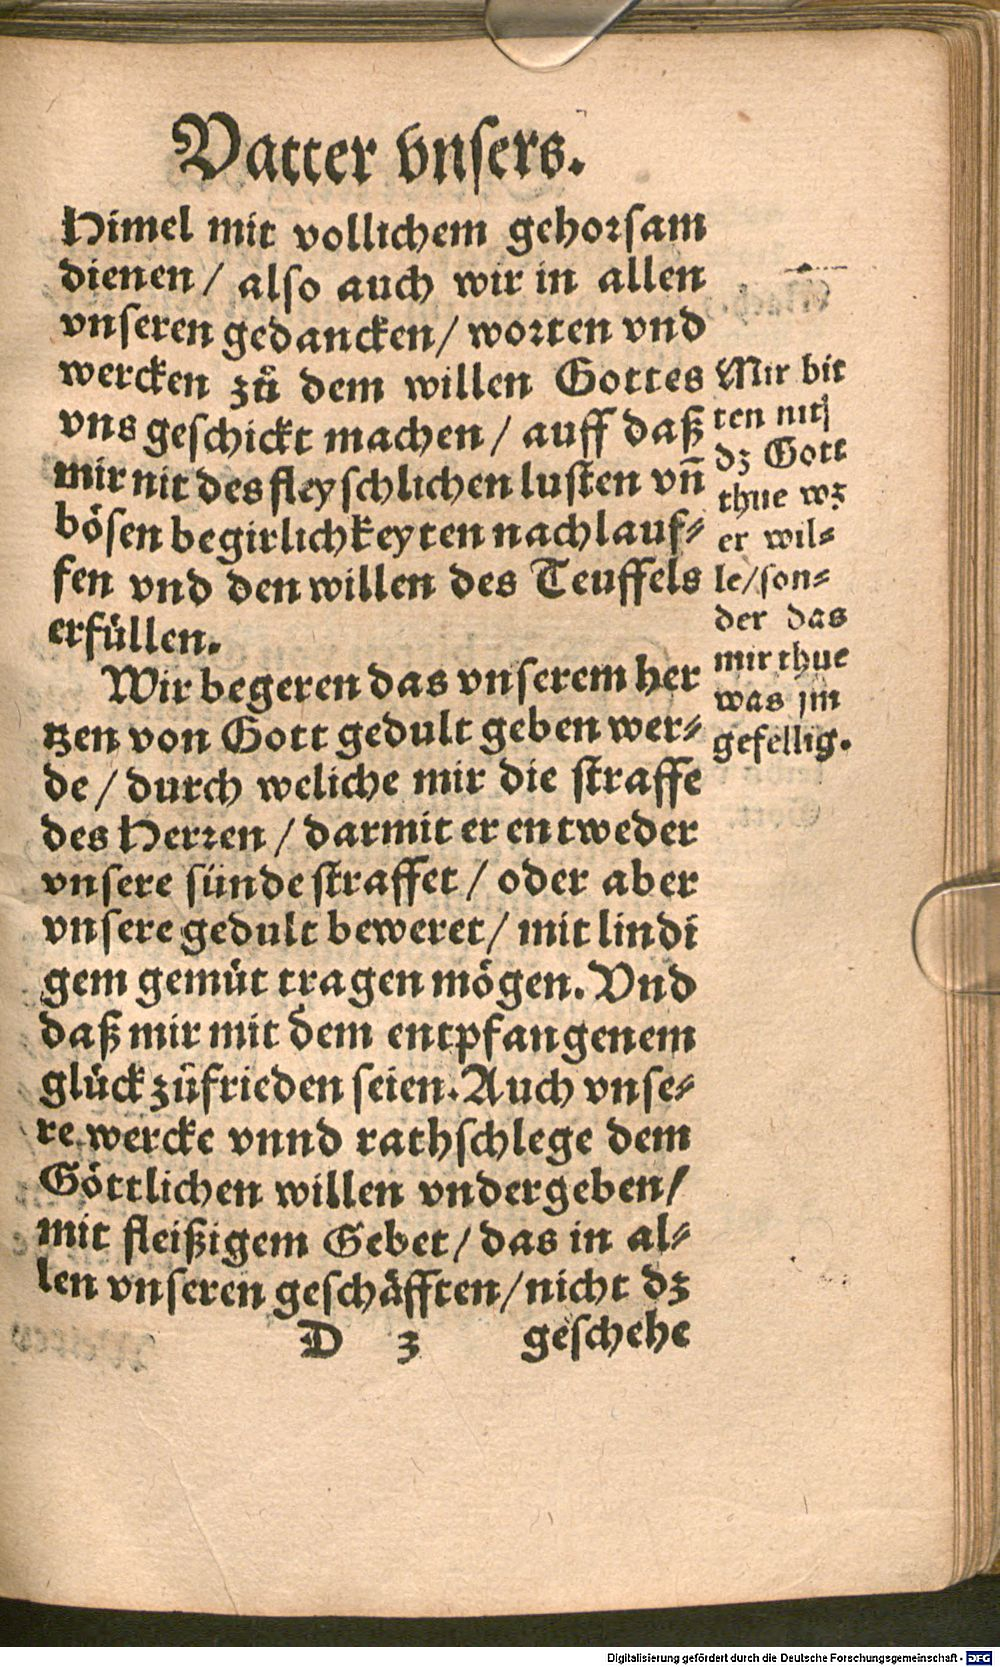 Vatter vnsers.
Himel mit vollichem gehorsam
dienen / also auch wir in allen
vnseren gedancken / worten vnd
wercken zů dem willen Gottes
vns geschickt machen / auff daß
mir nit des fleyschlichen lusten vñ
bösen begirlichkeyten nachlauf⸗
fen vnd den willen des Teuffels
erfüllen.
Wir begeren das vnserem her
tzen von Gott gedult geben wer⸗
de / durch weliche mir die straffe
des Herren / darmit er entweder
vnsere sünde straffet / oder aber
vnsere gedult beweret / mit lindi
gem gemüt tragen mögen. Vnd
daß mir mit dem entpfangenem
glück zůfrieden seien. Auch vnse⸗
re wercke vnnd rathschlege dem
Göttlichen willen vndergeben /
mit fleißigem Gebet / das in al⸗
len vnseren geschäfften / nicht dz
D 3 geschehe
Mir bit
ten nit
dz Gott
thue wz
er wil⸗
le / son⸗
der das
mir thue
was jm
gefellig.
Digitalisierung gefördert durch die Deutsche Forschungsgemeinschaft - DFG